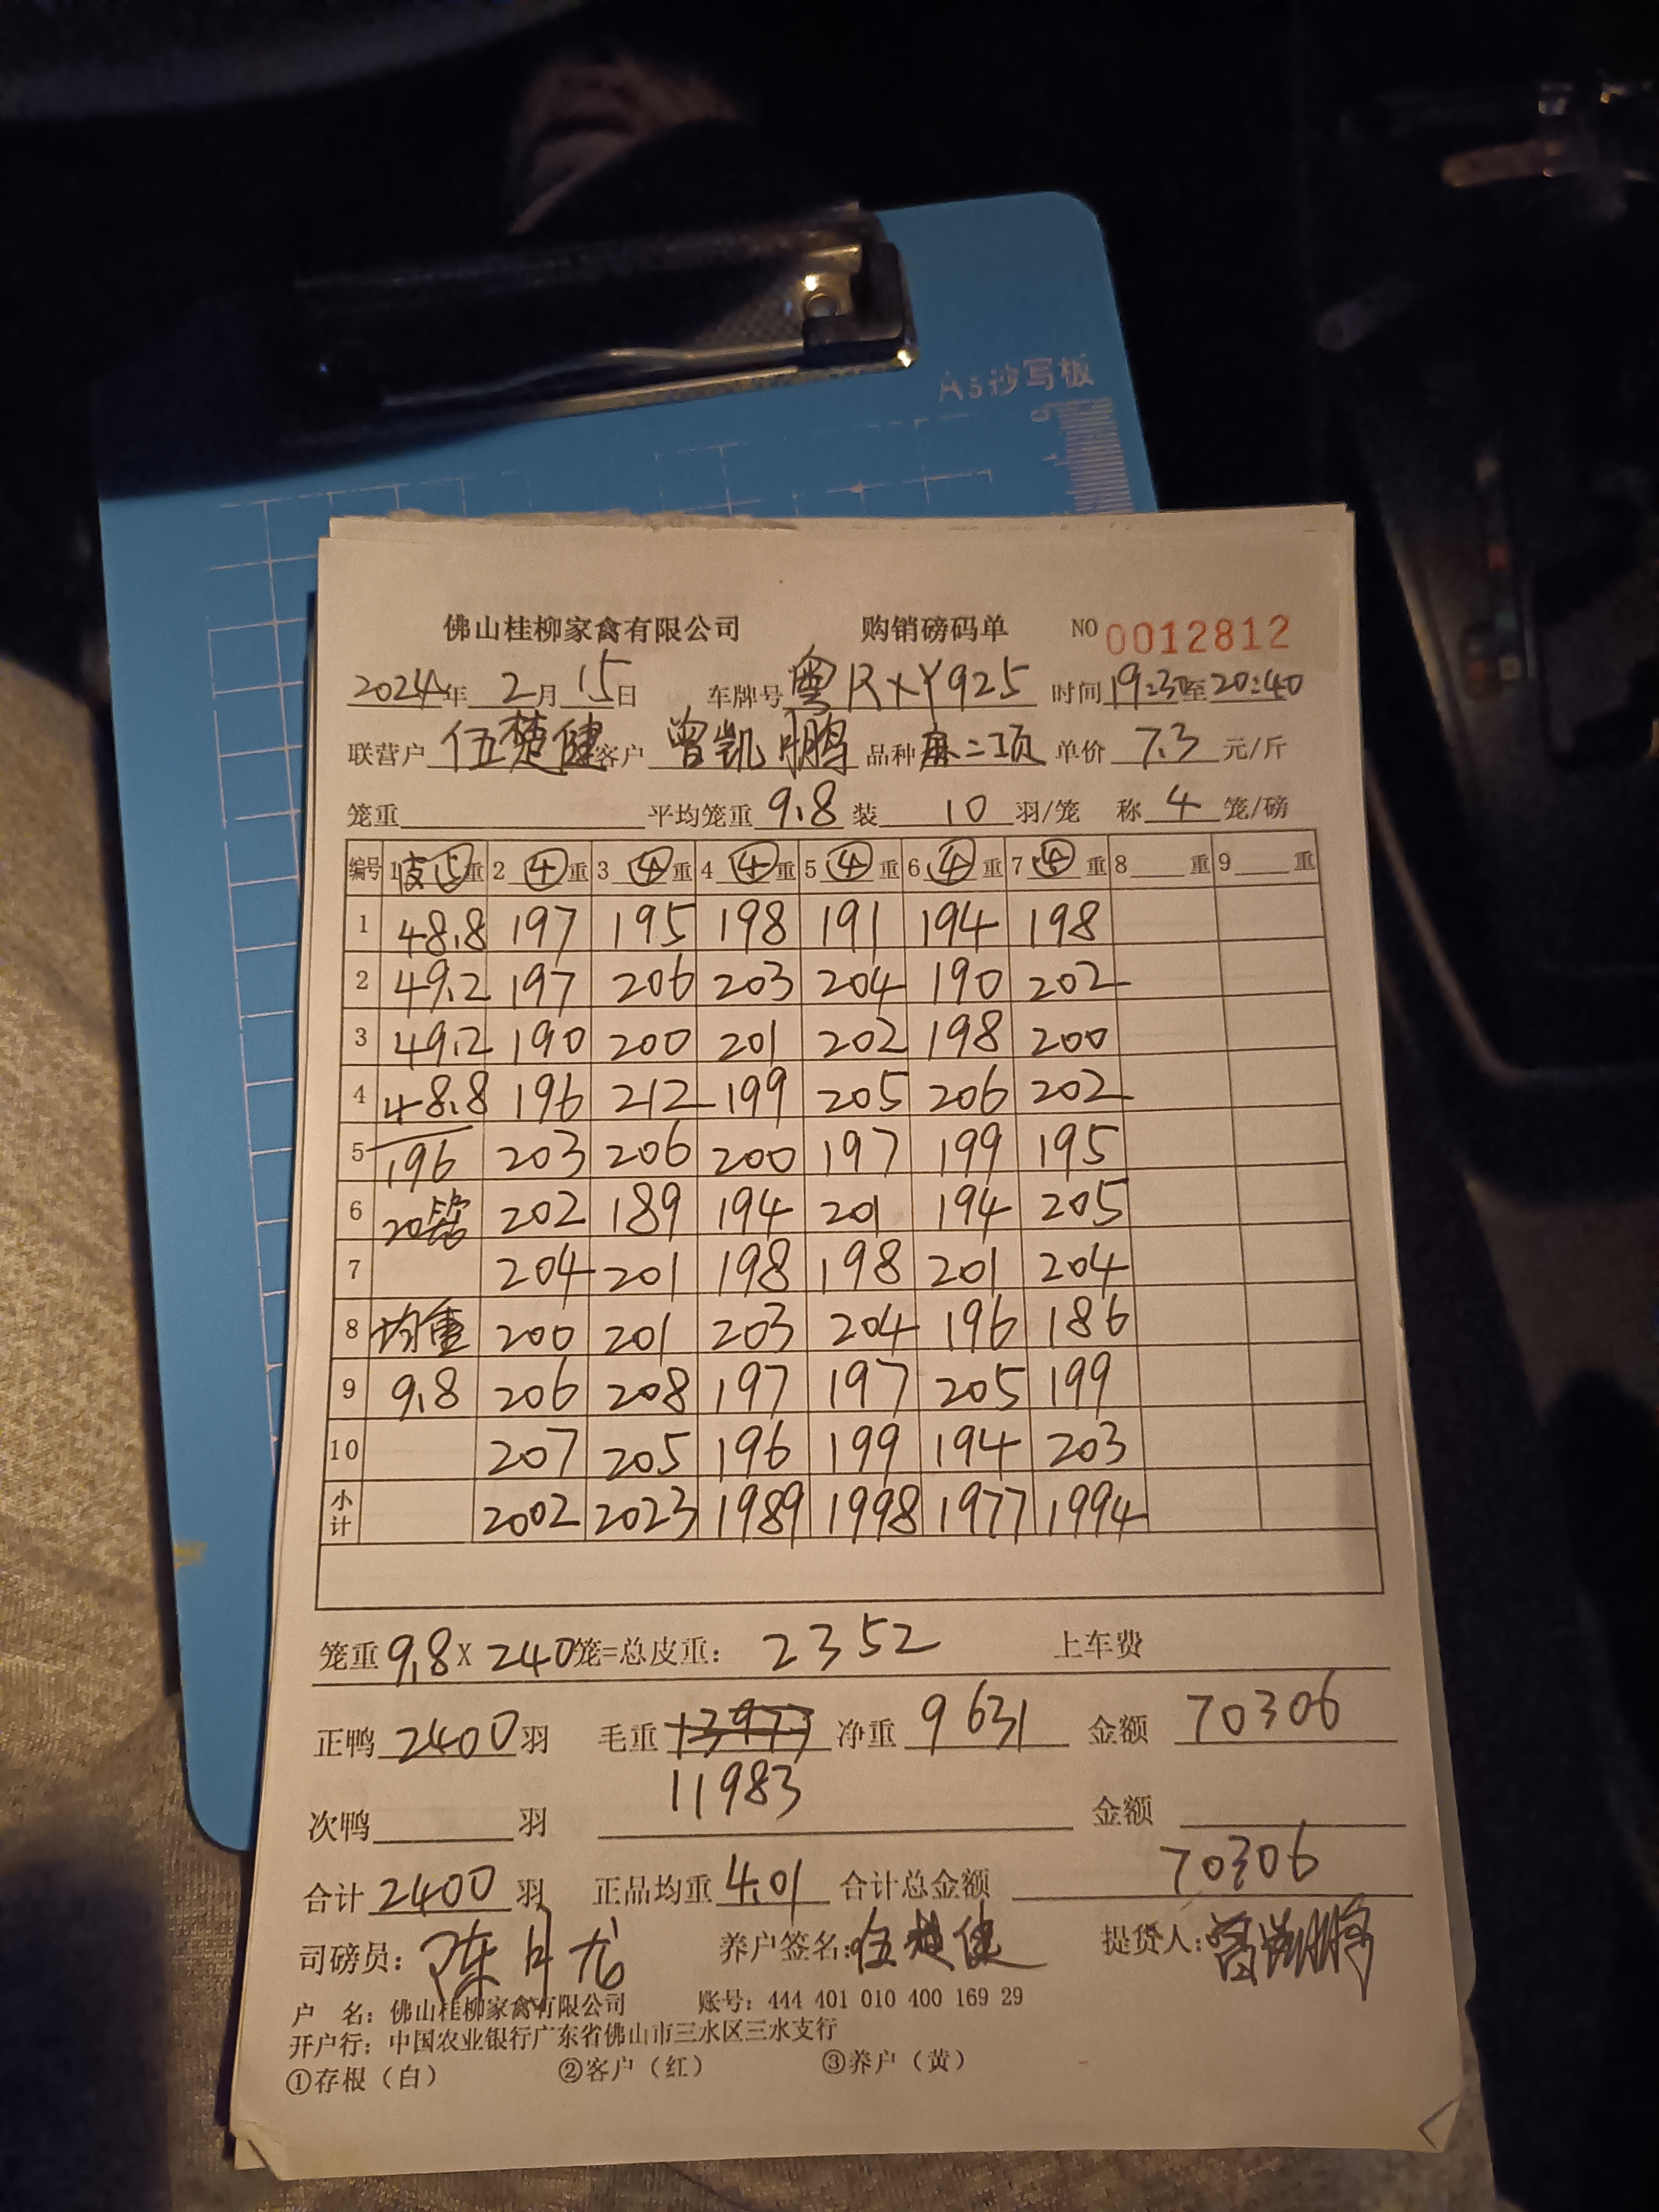 A5抄写板
佛山桂柳家禽有限公司 购销磅码单 NO 0012812
2024年 2月 15日 车牌号 粤RXY925 时间 19:30至20:40
联营户 伍楚健 客户 曾凯鹏 品种 麻二项 单价 7.3 元/斤
笼重 平均笼重 9.8 装 10 羽/笼 称 4 笼/磅
编号 1 皮⑤重 2 ④重 3 ④重 4 ④重 5 ④重 6 ④重 7 ④重 8 重 9 重
1 48.8 197 195 198 191 194 198
2 49.2 197 206 203 204 190 202
3 49.2 190 200 201 202 198 200
4 48.8 196 212 199 205 206 202
5 196 203 206 200 197 199 195
6 20笼 202 189 194 201 194 205
7 204 201 198 198 201 204
8 均重 200 201 203 204 196 186
9 9.8 206 208 197 197 205 199
10 207 205 196 199 194 203
小计 2002 2023 1989 1998 1977 1994
笼重 9.8 X 240笼=总皮重: 2352 上车费
正鸭 2400 羽 毛重 净重 9631 金额 70306
11983
次鸭 羽 金额
合计 2400 羽 正品均重 4.01 合计总金额 70306
司磅员: 陈月龙 养户签名: 伍楚健 提货人: 曾凯鹏
户 名: 佛山桂柳家禽有限公司 账号: 444 401 010 400 169 29
开户行: 中国农业银行广东省佛山市三水区三水支行
①存根（白） ②客户（红） ③养户（黄）